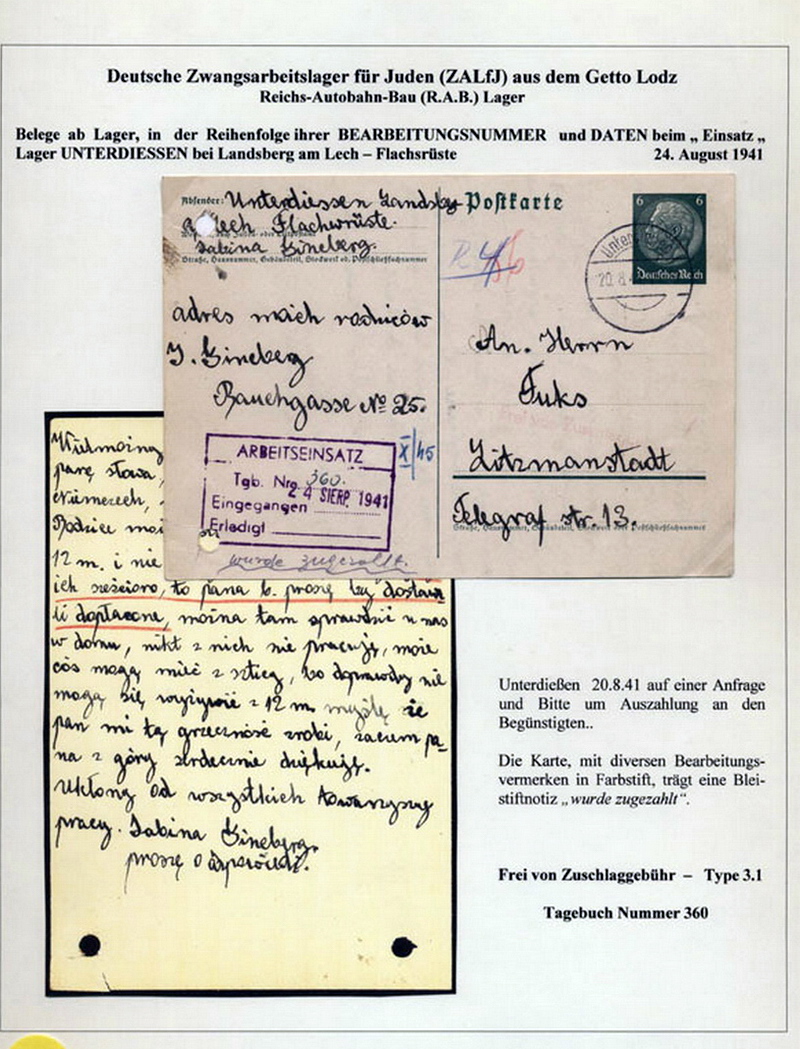 Deutsche Zwangsarbeitslager für Juden (ZALfJ) aus dem Getto Lodz
Reichs-Autobahn-Bau (R.A.B.) Lager
Belege ab Lager, in der Reihenfolge ihrer BEARBEITUNGSNUMMER und DATEN beim „ Einsatz „
Lager UNTERDIESSEN bei Landsberg am Lech – Flachsrüste 24. August 1941
Absender: Unterdiessen Landsberg
a/Lech Flachsrüste.
Sabina Gineberg.
Straße, Hausnummer, Gebäudeteil, Stockwerk od. Postschließfachnummer
adres moich rodziców
J. Gineberg
Rauchgasse № 25.
ARBEITSEINSATZ
Tgb. Nr. 360.
24 SIERP. 1941
Eingegangen
Erledigt
X/45
wurde zugezahlt.
Postkarte
6 6
Deutsches Reich
20.8.
An. Herrn
Fuks
Litzmanstadt
Telegraf str. 13.
Straße, Hausnummer, Gebäudeteil, Stockwerk oder Postschließfachnummer
Wielmożny
parę słowa,
Niemczech,
Rodzice moi
12 m. i nie
ich sześcioro, to pana b. proszę by dostawa
li dopłacone, można tam sprawdzić u nas
w domu, nikt z nich nie pracuję, może
coś mogą mieć z , bo doprawdy nie
mogą się wyżywić z 12 m. myślę że
pan mi tą grzeczność zrobi, zaczem pa
na z góry serdecznie dziękuję.
Ukłony od wszystkich towarzyszy
pracy. Sabina Gineberg.
proszę o odpowiedź.
Unterdießen 20.8.41 auf einer Anfrage
und Bitte um Auszahlung an den
Begünstigten..
Die Karte, mit diversen Bearbeitungs-
vermerken in Farbstift, trägt eine Blei-
stiftnotiz „wurde zugezahlt“.
Frei von Zuschlaggebühr – Type 3.1
Tagebuch Nummer 360